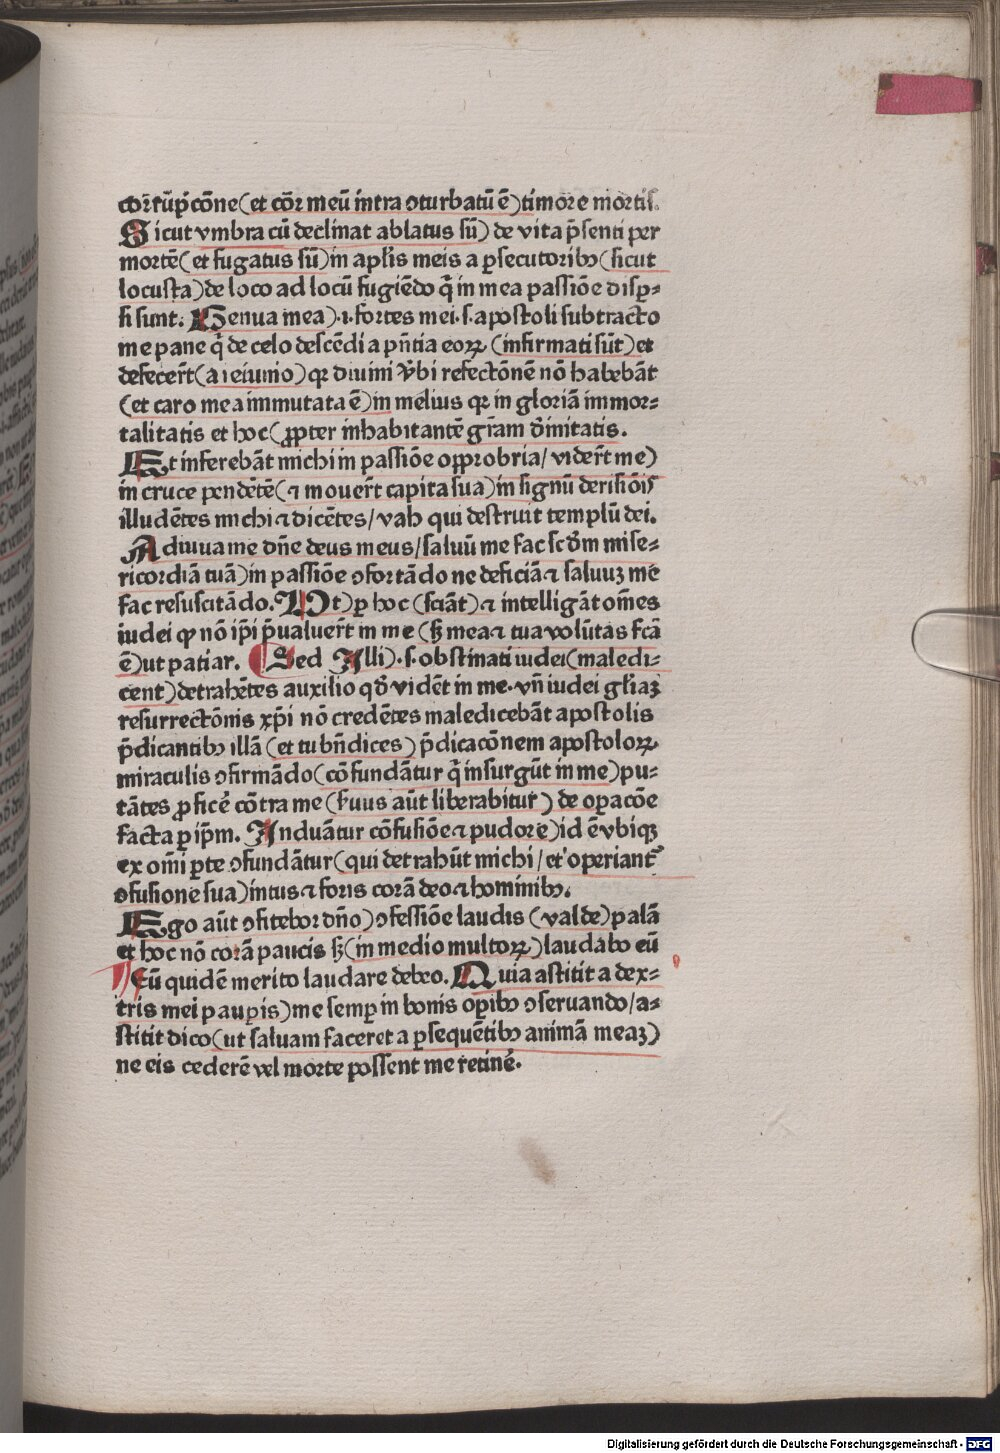 corrup̄cōne (et cōr meū intra ꝯturbatū ē) timore mortis.
Sicut vmbra cū declinat ablatus sū) de vita p̄senti per
mortē (et fugatus sū) in apl̄is meis a ꝑsecutoribꝫ (sicut
locusta) de loco ad locū fugiēdo q̄ in mea passiōe disꝑ⸗
si sunt. Genua mea) .i. fortes mei .s. apostoli subtracto
me pane q̄ de celo descēdi a p̄ntia eoꝝ (infirmati sūt) et
defecer̄t (a ieiunio) qꝛ diuini v̄bi refectōnē nō habebāt
(et caro mea immutata ē) in melius qꝛ in gloriā immor⸗
talitatis et hoc (ꝓpter inhabitantē gr̄am diuinitatis.
Et inferebāt michi in passiōe opprobria / vider̄t me)
in cruce pendētē (⁊ mouer̄t capita sua) in signū derisiōis
illudētes michi ⁊ dicētes / vah qui destruit templū dei.
Adiuua me dn̄e deus meus / saluū me fac scd̄m mise⸗
ricordiā tuā) in passiōe ꝯfortādo ne deficiā ⁊ saluuꝫ me
fac resuscitādo. Vt) ꝑ hoc (sciāt) ⁊ intelligāt om̄es
iudei ꝙ nō ip̄i p̄ualuer̄t in me (sꝫ mea ⁊ tua volūtas fc̄a
ē) ut patiar. Sed Illi) .s. obstinati iudei (maledi⸗
cent) detrahētes auxilio qd̄ vidēt in me. vn̄ iudei gl̄iaꝫ
resurrectōnis xp̄i nō credētes maledicebāt apostolis
p̄dicantibꝫ illā (et tu bn̄dices) p̄dicacōnem apostoloꝝ
miraculis ꝯfirmādo (cōfundātur q̄ insurgūt in me) pu⸗
tātes ꝓficē cōtra me (s̄uus aūt liberabitur) de oꝑacōe
facta ꝑ ip̄m. Induātur cōfusiōe ⁊ pudore) id ē vbiqꝫ
ex om̄i ꝑte ꝯfundātur (qui detrahūt michi / et oꝑiant᷑
ꝯfusione sua) intus ⁊ foris corā deo ⁊ hominibꝫ.
Ego aūt ꝯfitebor dn̄o) ꝯfessiōe laudis (valde) palā
et hoc nō corā paucis sꝫ (in medio multoꝝ) laudabo eū
Eū quidē merito laudare debeo. Quia astitit a dex⸗
tris mei pauꝑis) me semꝑ in bonis oꝑibꝫ ꝯseruando / a⸗
stitit dico (ut saluam faceret a ꝑsequētibꝫ animā meaꝫ)
ne eis cederē vel morte possent me retinē.
Digitalisierung gefördert durch die Deutsche Forschungsgemeinschaft - DFG